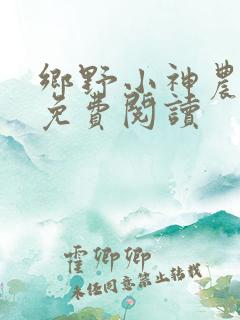 鄉野小神農
免費閱讀
霍卿卿
未经同意禁止转载